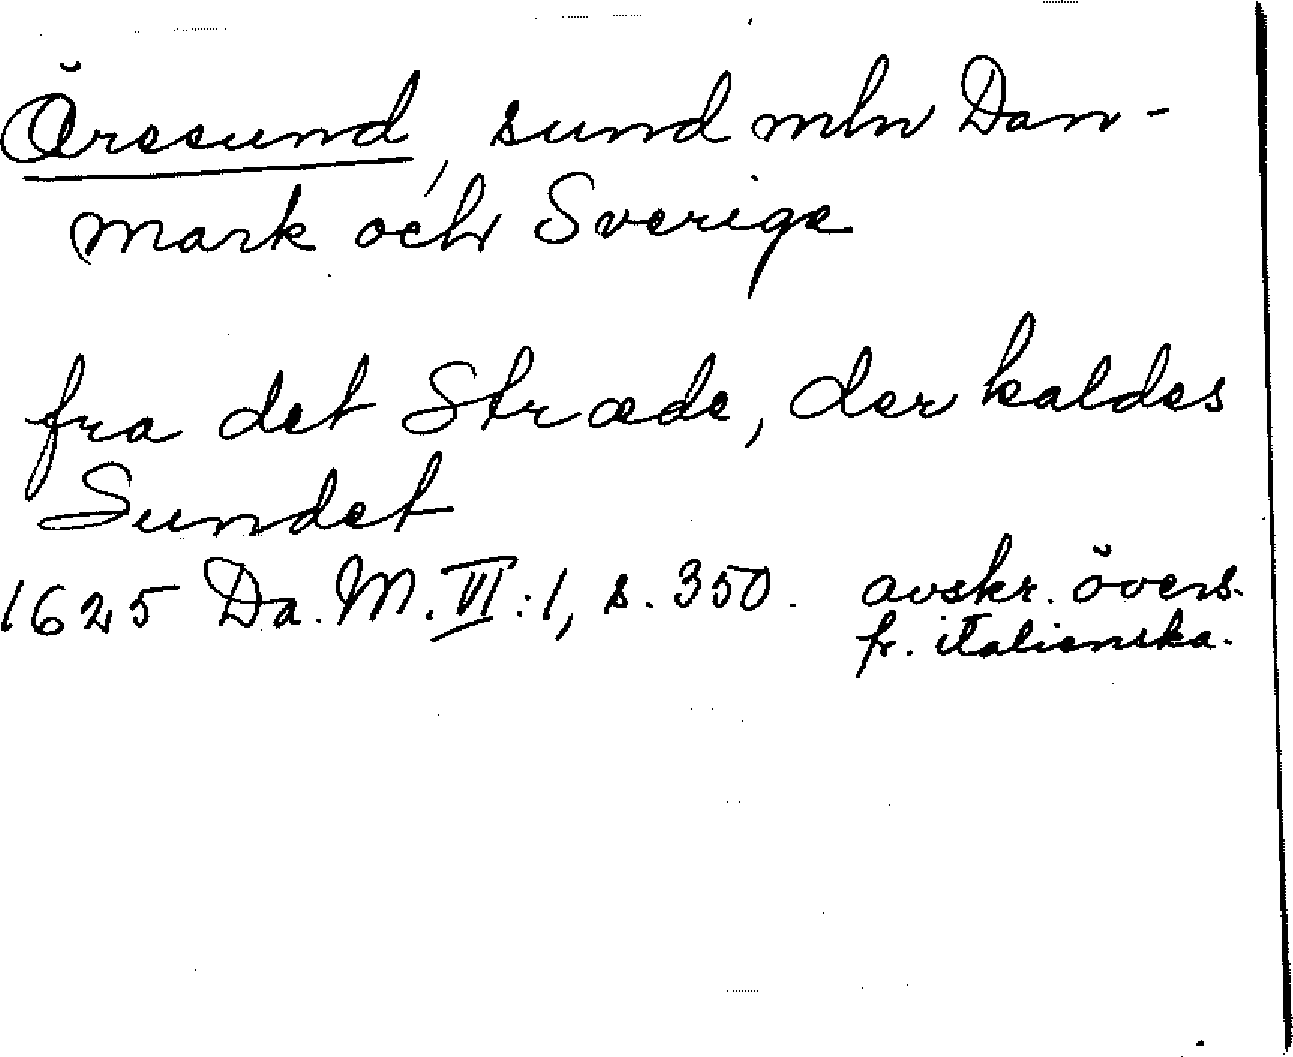 Örssund, sund mln Dan-
mark och Sverige
fra det Stræde, der kaldes
Sundet
1625 Da. M. VI:1, s. 350. avskr. övers.
fr. italienska.